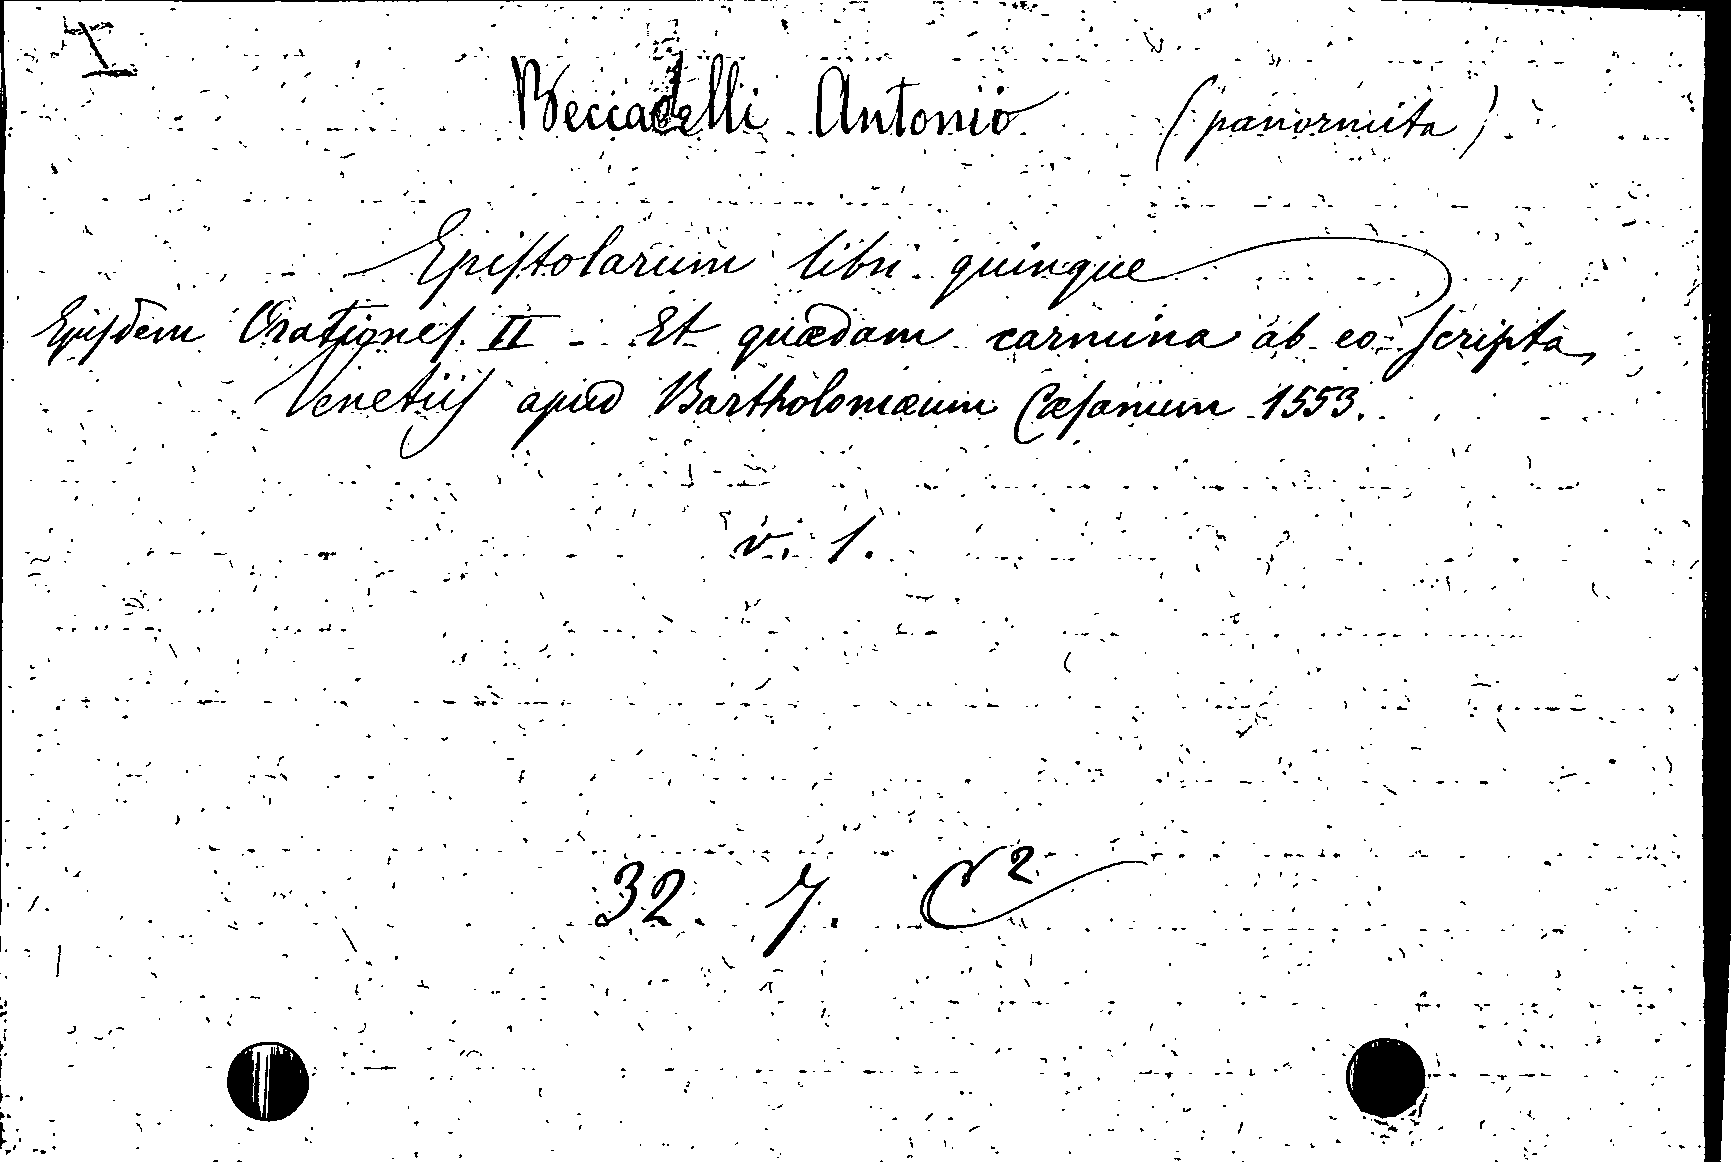 I
Beccadelli Antonio (panormita)
Epistolarum libri quinque
Ejusdem Orationes II - Et quædam carmina ab eo scripta
Venetiis apud Bartholomæum Cæsanum 1553.
v. 1.
32. 7. C2